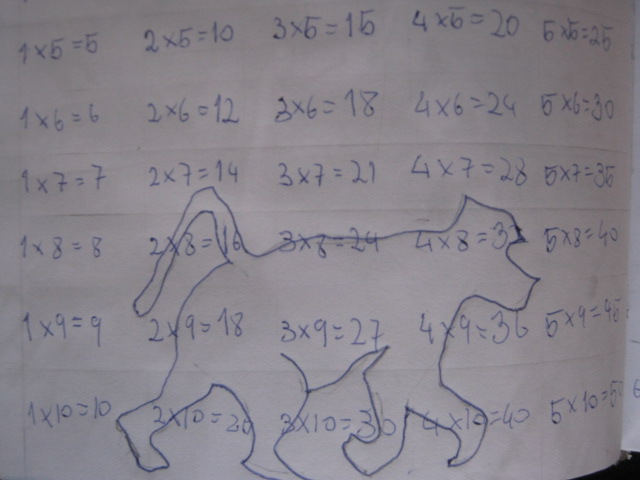 1×5=5 2×5=10 3×5=15 4×5=20 5×5=25
1×6=6 2×6=12 3×6=18 4×6=24 5×6=30
1×7=7 2×7=14 3×7=21 4×7=28 5×7=35
1×8=8 2×8=16 3×8=24 4×8=32 5×8=40
1×9=9 2×9=18 3×9=27 4×9=36 5×9=45
1×10=10 2×10=20 3×10=30 4×10=40 5×10=50